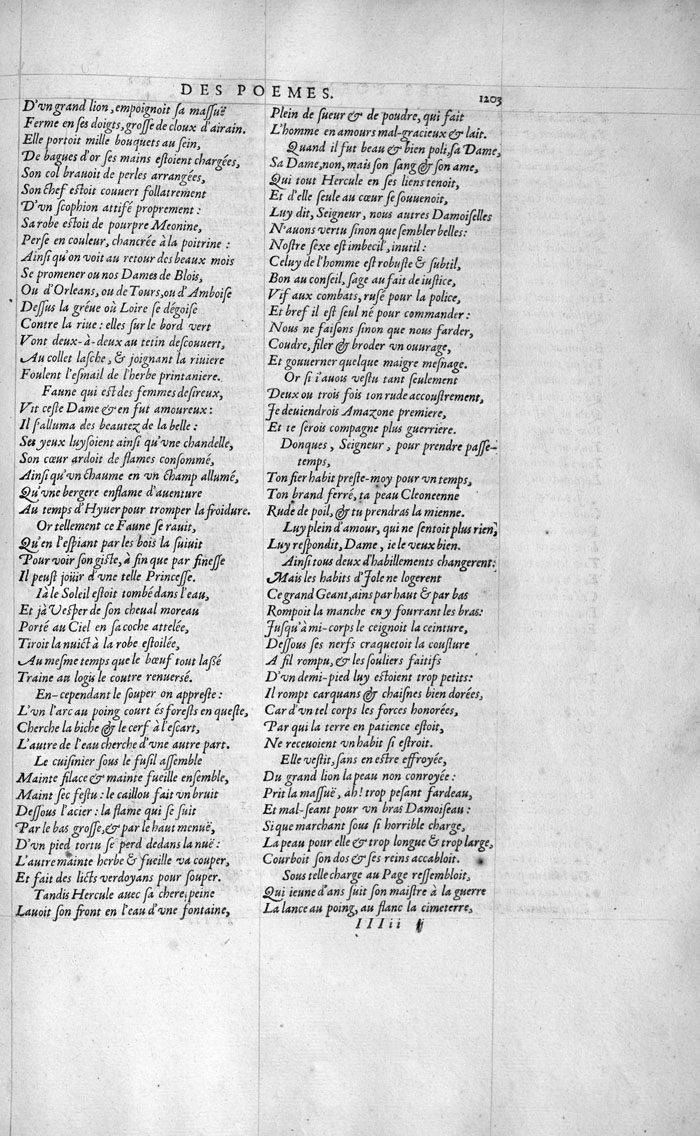 DES POEMES.
1203
D'vn grand lion, empoignoit sa massuë
Ferme en ses doigts, grosse de cloux d'airain.
Elle portoit mille bouquets au sein,
De bagues d'or ses mains estoient chargées,
Son col brauoit de perles arrangées,
Son chef estoit couuert follatrement
D'vn scophion attifé proprement :
Sa robe estoit de pourpre Meonine,
Perse en couleur, chancrée à la poitrine :
Ainsi qu'on voit au retour des beaux mois
Se promener ou nos Dames de Blois,
Ou d'Orleans, ou de Tours, ou d'Amboise
Dessus la gréue où Loire se dégoise
Contre la riue : elles sur le bord vert
Vont deux-à-deux au tetin descouuert,
Au collet lasche, & joignant la riuiere
Foulent l'esmail de l'herbe printaniere.
Faune qui est des femmes desireux,
Vit ceste Dame & en fut amoureux :
Il s'alluma des beautez de la belle :
Ses yeux luysoient ainsi qu'vne chandelle,
Son cœur ardoit de flames consommé,
Ainsi qu'vn chaume en vn champ allumé,
Qu'vne bergere enflame d'auenture
Au temps d'Hyuer pour tromper la froidure.
Or tellement ce Faune se rauit,
Qu'en l'espiant par les bois la suiuit
Pour voir son giste, à fin que par finesse
Il peust jouïr d'vne telle Princesse.
Ià le Soleil estoit tombé dans l'eau,
Et jà Vesper de son cheual moreau
Porté au Ciel en sa coche attelée,
Tiroit la nuict à la robe estoilée,
Au mesme temps que le bœuf tout lassé
Traine au logis le coutre renuersé.
En-cependant le souper on appreste :
L'vn l'arc au poing court és forests en queste,
Cherche la biche & le cerf à l'escart,
L'autre de l'eau cherche d'vne autre part.
Le cuisinier sous le fusil assemble
Mainte filace & mainte fueille ensemble,
Maint sec festu : le caillou fait vn bruit
Dessous l'acier : la flame qui se suit
Par le bas grosse, & par le haut menuë,
D'vn pied tortu se perd dedans la nuë :
L'autre mainte herbe & fueille va couper,
Et fait des licts verdoyans pour souper.
Tandis Hercule auec sa chere peine
Lauoit son front en l'eau d'vne fontaine,
Plein de sueur & de poudre, qui fait
L'homme en amours mal-gracieux & lait.
Quand il fut beau & bien poli, sa Dame,
Sa Dame, non, mais son sang & son ame,
Qui tout Hercule en ses liens tenoit,
Et d'elle seule au cœur se souuenoit,
Luy dit, Seigneur, nous autres Damoiselles
N'auons vertu sinon que sembler belles :
Nostre sexe est imbecil, inutil :
Celuy de l'homme est robuste & subtil,
Bon au conseil, sage au fait de iustice,
Vif aux combats, rusé pour la police,
Et bref il est seul né pour commander :
Nous ne faisons sinon que nous farder,
Coudre, filer & broder vn ouurage,
Et gouuerner quelque maigre mesnage.
Or si i'auois vestu tant seulement
Deux ou trois fois ton rude accoustrement,
Je deuiendrois Amazone premiere,
Et te serois compagne plus guerriere.
Donques, Seigneur, pour prendre passe-
temps,
Ton fier habit preste-moy pour vn temps,
Ton brand ferré, ta peau Cleoneenne
Rude de poil, & tu prendras la mienne.
Luy plein d'amour, qui ne sentoit plus rien,
Luy respondit, Dame, ie le veux bien.
Ainsi tous deux d'habillements changerent :
Mais les habits d'Jole ne logerent
Ce grand Geant, ains par haut & par bas
Rompoit la manche en y fourrant les bras :
Jusqu'à mi-corps le ceignoit la ceinture,
Dessous ses nerfs craquetoit la cousture
A fil rompu, & les souliers faitifs
D'vn demi-pied luy estoient trop petits :
Il rompt carquans & chaisnes bien dorées,
Car d'vn tel corps les forces honorées,
Par qui la terre en patience estoit,
Ne receuoient vn habit si estroit.
Elle vestit, sans en estre effroyée,
Du grand lion la peau non conroyée :
Prit la massuë, ah ! trop pesant fardeau,
Et mal-seant pour vn bras Damoiseau :
Si que marchant sous si horrible charge,
La peau pour elle & trop longue & trop large,
Courboit son dos & ses reins accabloit.
Sous telle charge au Page ressembloit,
Qui ieune d'ans suit son maistre à la guerre
La lance au poing, au flanc la cimeterre,
IIIii ij